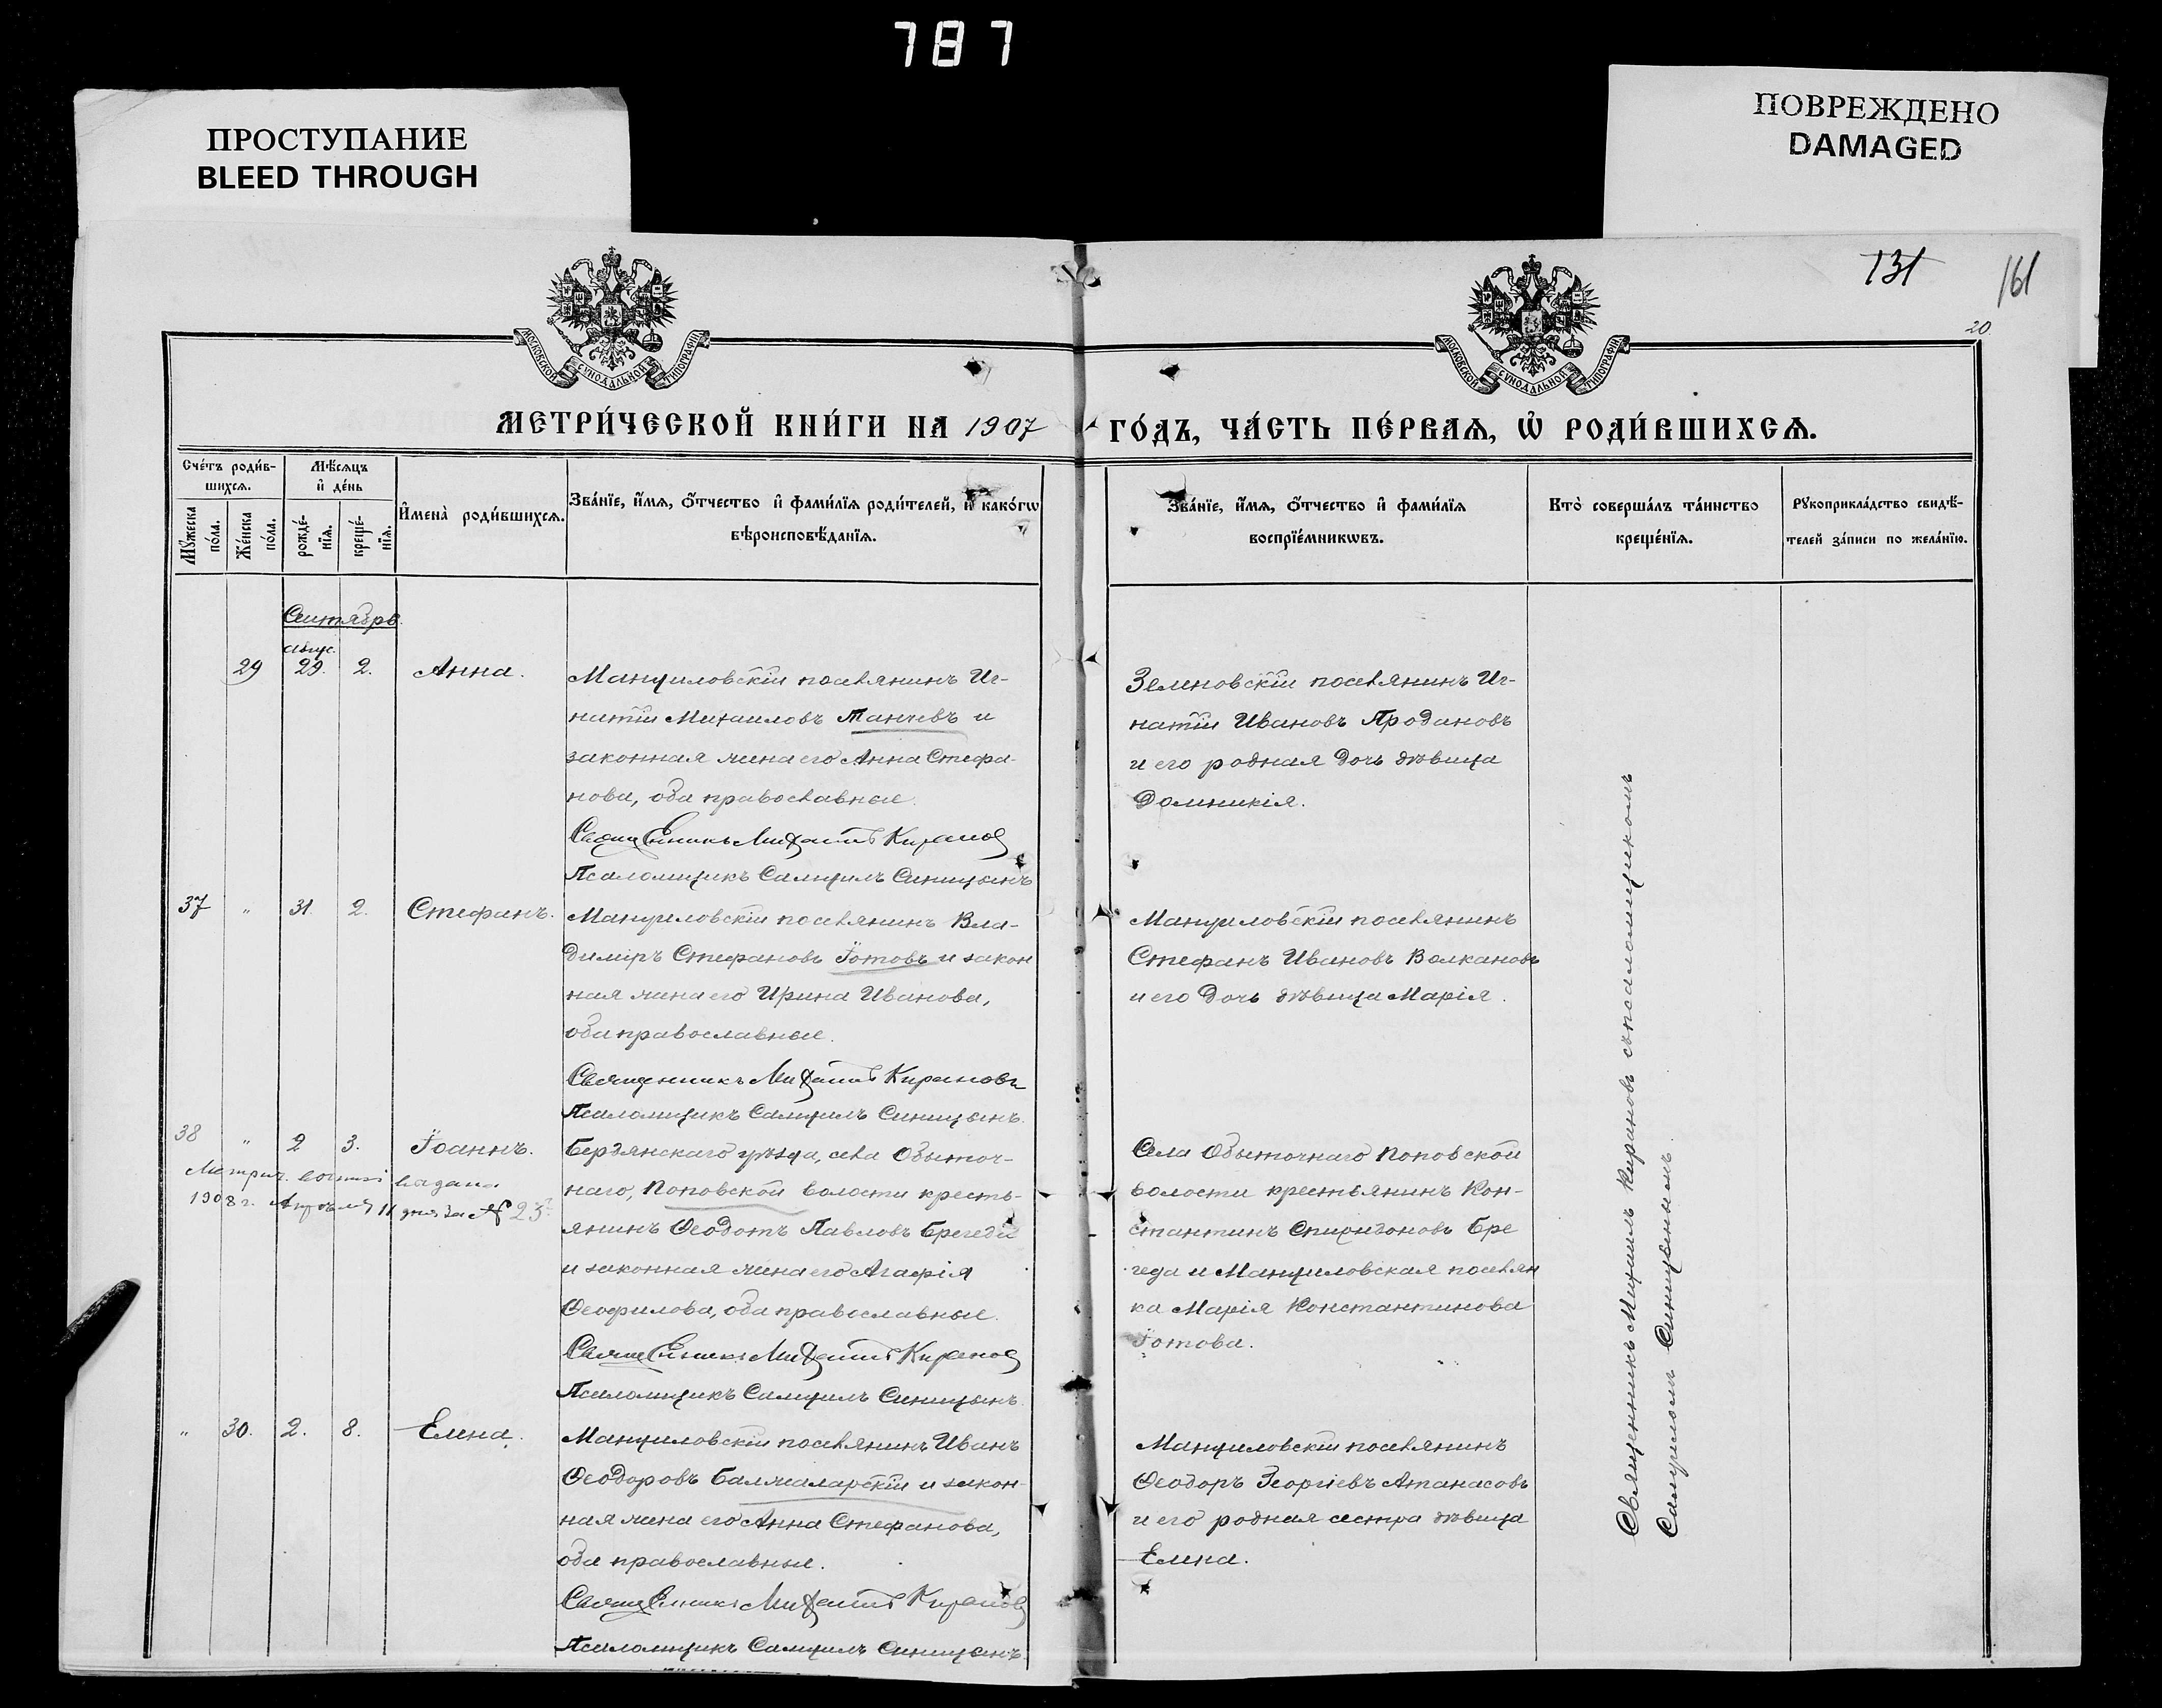 787
ПРОСТУПАНИЕ
BLEED THROUGH
ПОВРЕЖДЕНО
DAMAGED
131
161
20
МОСКОВСКОЙ СѴНОДАЛЬНОЙ ТИПОГРАФІИ
МОСКОВСКОЙ СѴНОДАЛЬНОЙ ТИПОГРАФІИ
МЕТРИ́ЧЕСКОЙ КНИ́ГИ НА 1907 ГО́ДЪ, ЧА́СТЬ ПЕ́РВАѦ, Ѡ҆ РОДИ́ВШИХСѦ.
Сче́тъ роди́в-
шихсѧ.
Мѹ́жеска по́ла.
Же́нска по́ла.
Мѣ́сѧцъ
и҆ де́нь
рожде́-
нїѧ.
креще́-
нїѧ.
И҆мена̀ роди́вшихсѧ.
Зва́нїе, и҆́мѧ, ѻ҆́тчество и҆ фами́лїѧ роди́телей, и҆ како́гѡ
вѣроисповѣ́данїѧ.
Зва́нїе, и҆́мѧ, ѻ҆́тчество и҆ фами́лїѧ
воспрїе́мникѡвъ.
Кто̀ соверша́лъ та́инство
креще́нїѧ.
Рѹкоприкла́дство свидѣ́-
телей за́писи по жела́нїю.
Сентябрь.
Авгус.
29 29. 2. Анна.
Мануиловскій поселянинъ Иг-
натій Михаиловъ Танчевъ и
законная жена его Анна Стефа-
нова, оба православные.
Священникъ Михаилъ Киранов
Псаломщикъ Самуилъ Синицынъ
Зеленовскій поселянинъ Иг-
натій Ивановъ Продановъ
и его родная дочь дѣвица
Домникія.
37 „ 31. 2. Стефанъ.
Мануиловскій поселянинъ Вла-
диміръ Стефановъ Іотовъ и закон
ная жена его Ирина Иванова,
оба православные.
Священникъ Михаилъ Кирановъ
Псаломщикъ Самуилъ Синицынъ.
Мануиловскій поселянинъ
Стефанъ Ивановъ Волкановъ
и его дочь дѣвица Марія.
38 „ 2 3. Іоаннъ.
Метрич. выпись выдана
1908 г. Апрѣля 11 дня за № 23
Бердянскаго уѣзда, села Обыточ-
наго, Поповской волости кресть-
янинъ Ѳеодотъ Павловъ Брегеда
и законная жена его Агафія
Ѳеофилова, оба православные.
Священникъ Михаилъ Киранов
Псаломщикъ Самуилъ Синицынъ
Села Обыточнаго Поповской
волости крестьянинъ Кон-
стантинъ Спиридоновъ Бре
геда и Мануиловская поселян
ка Марія Константинова
Іотова.
„ 30. 2. 8. Елена.
Мануиловскій поселянинъ Иванъ
Ѳеодоровъ Балжаларскій и закон-
ная жена его Анна Стефанова,
оба православные.
Священникъ Михаилъ Киранов
Псаломщикъ Самуилъ Синицынъ
Мануиловскій поселянинъ
Ѳеодоръ Георгіевъ Атанасовъ
и его родная сестра дѣвица
Елена.
Священникъ Михаилъ Кирановъ съ псаломщикомъ
Самуиломъ Синицынымъ.